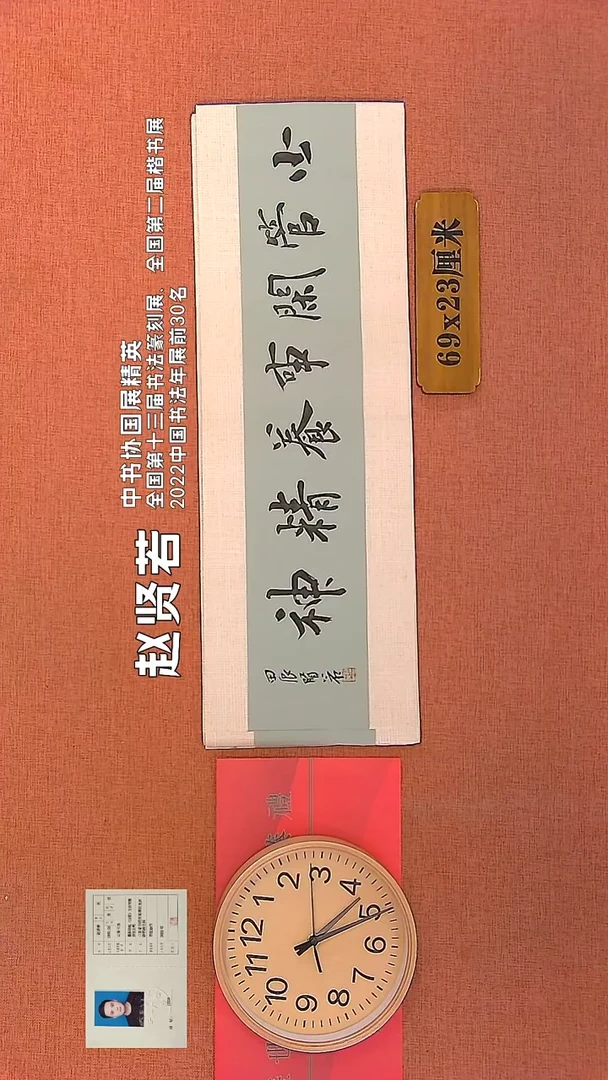 赵贤若
中书协国展精英
全国第十三届书法篆刻展、全国第二届楷书展
2022中国书法年展前30名
少管閑事養精神
甲辰賢若
69x23厘米
禮
12
1
2
3
4
5
6
7
8
9
10
11